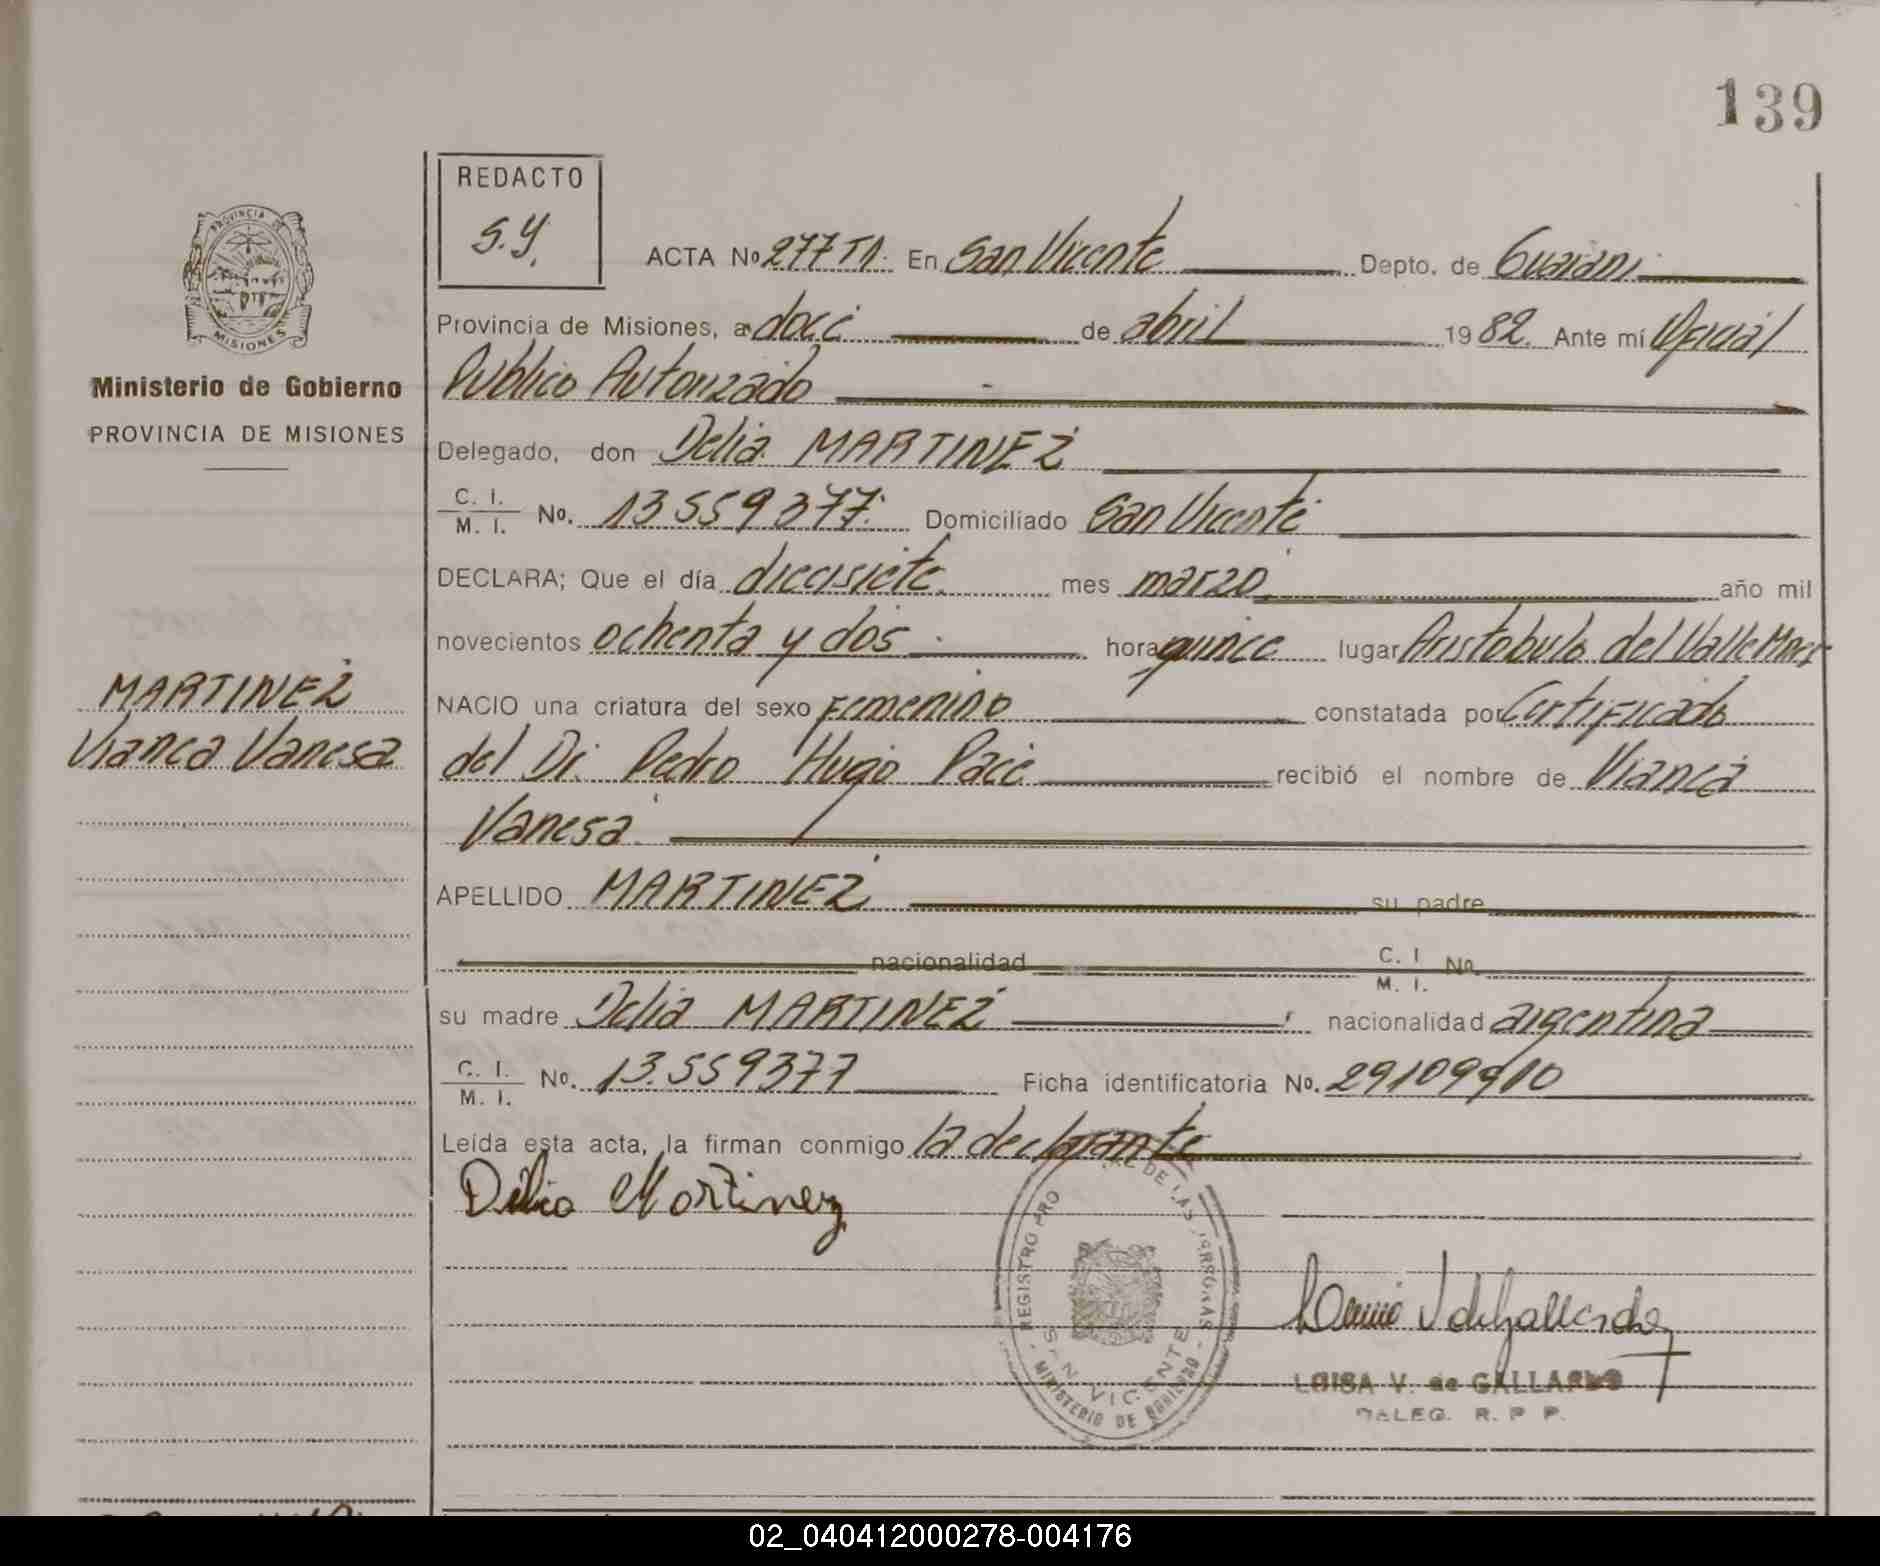 139
REDACTO
S.Y.
PROVINCIA DE
MISIONES
Ministerio de Gobierno
PROVINCIA DE MISIONES
MARTINEZ
Vianca Vanesa
ACTA No 277 TI. En San Vicente Depto. de Guaraní
Provincia de Misiones, a doce de abril 1982. Ante mí Oficial
Público Autorizado
Delegado, don Delia MARTINEZ
C. I. / M. I. No. 13559377. Domiciliado San Vicente
DECLARA; Que el día diecisiete mes marzo año mil
novecientos ochenta y dos hora quince lugar Aristobulo del Valle Mnes
NACIO una criatura del sexo femenino constatada por Certificado
del Dr. Pedro Hugo Pace recibió el nombre de Vianca
Vanesa
APELLIDO MARTINEZ su padre
nacionalidad C. I / M. I. No.
su madre Delia MARTINEZ nacionalidad argentina
C. I. / M. I. No. 13.559377 Ficha identificatoria No. 29109910
Leída esta acta, la firman conmigo la declarante
Delia Martinez
REGISTRO PRO DE LAS PERSONAS
SAN VICENTE
MINISTERIO DE GOBIERNO
LUISA V. de GALLARDO
DELEG. R. P. P.
02_040412000278-004176